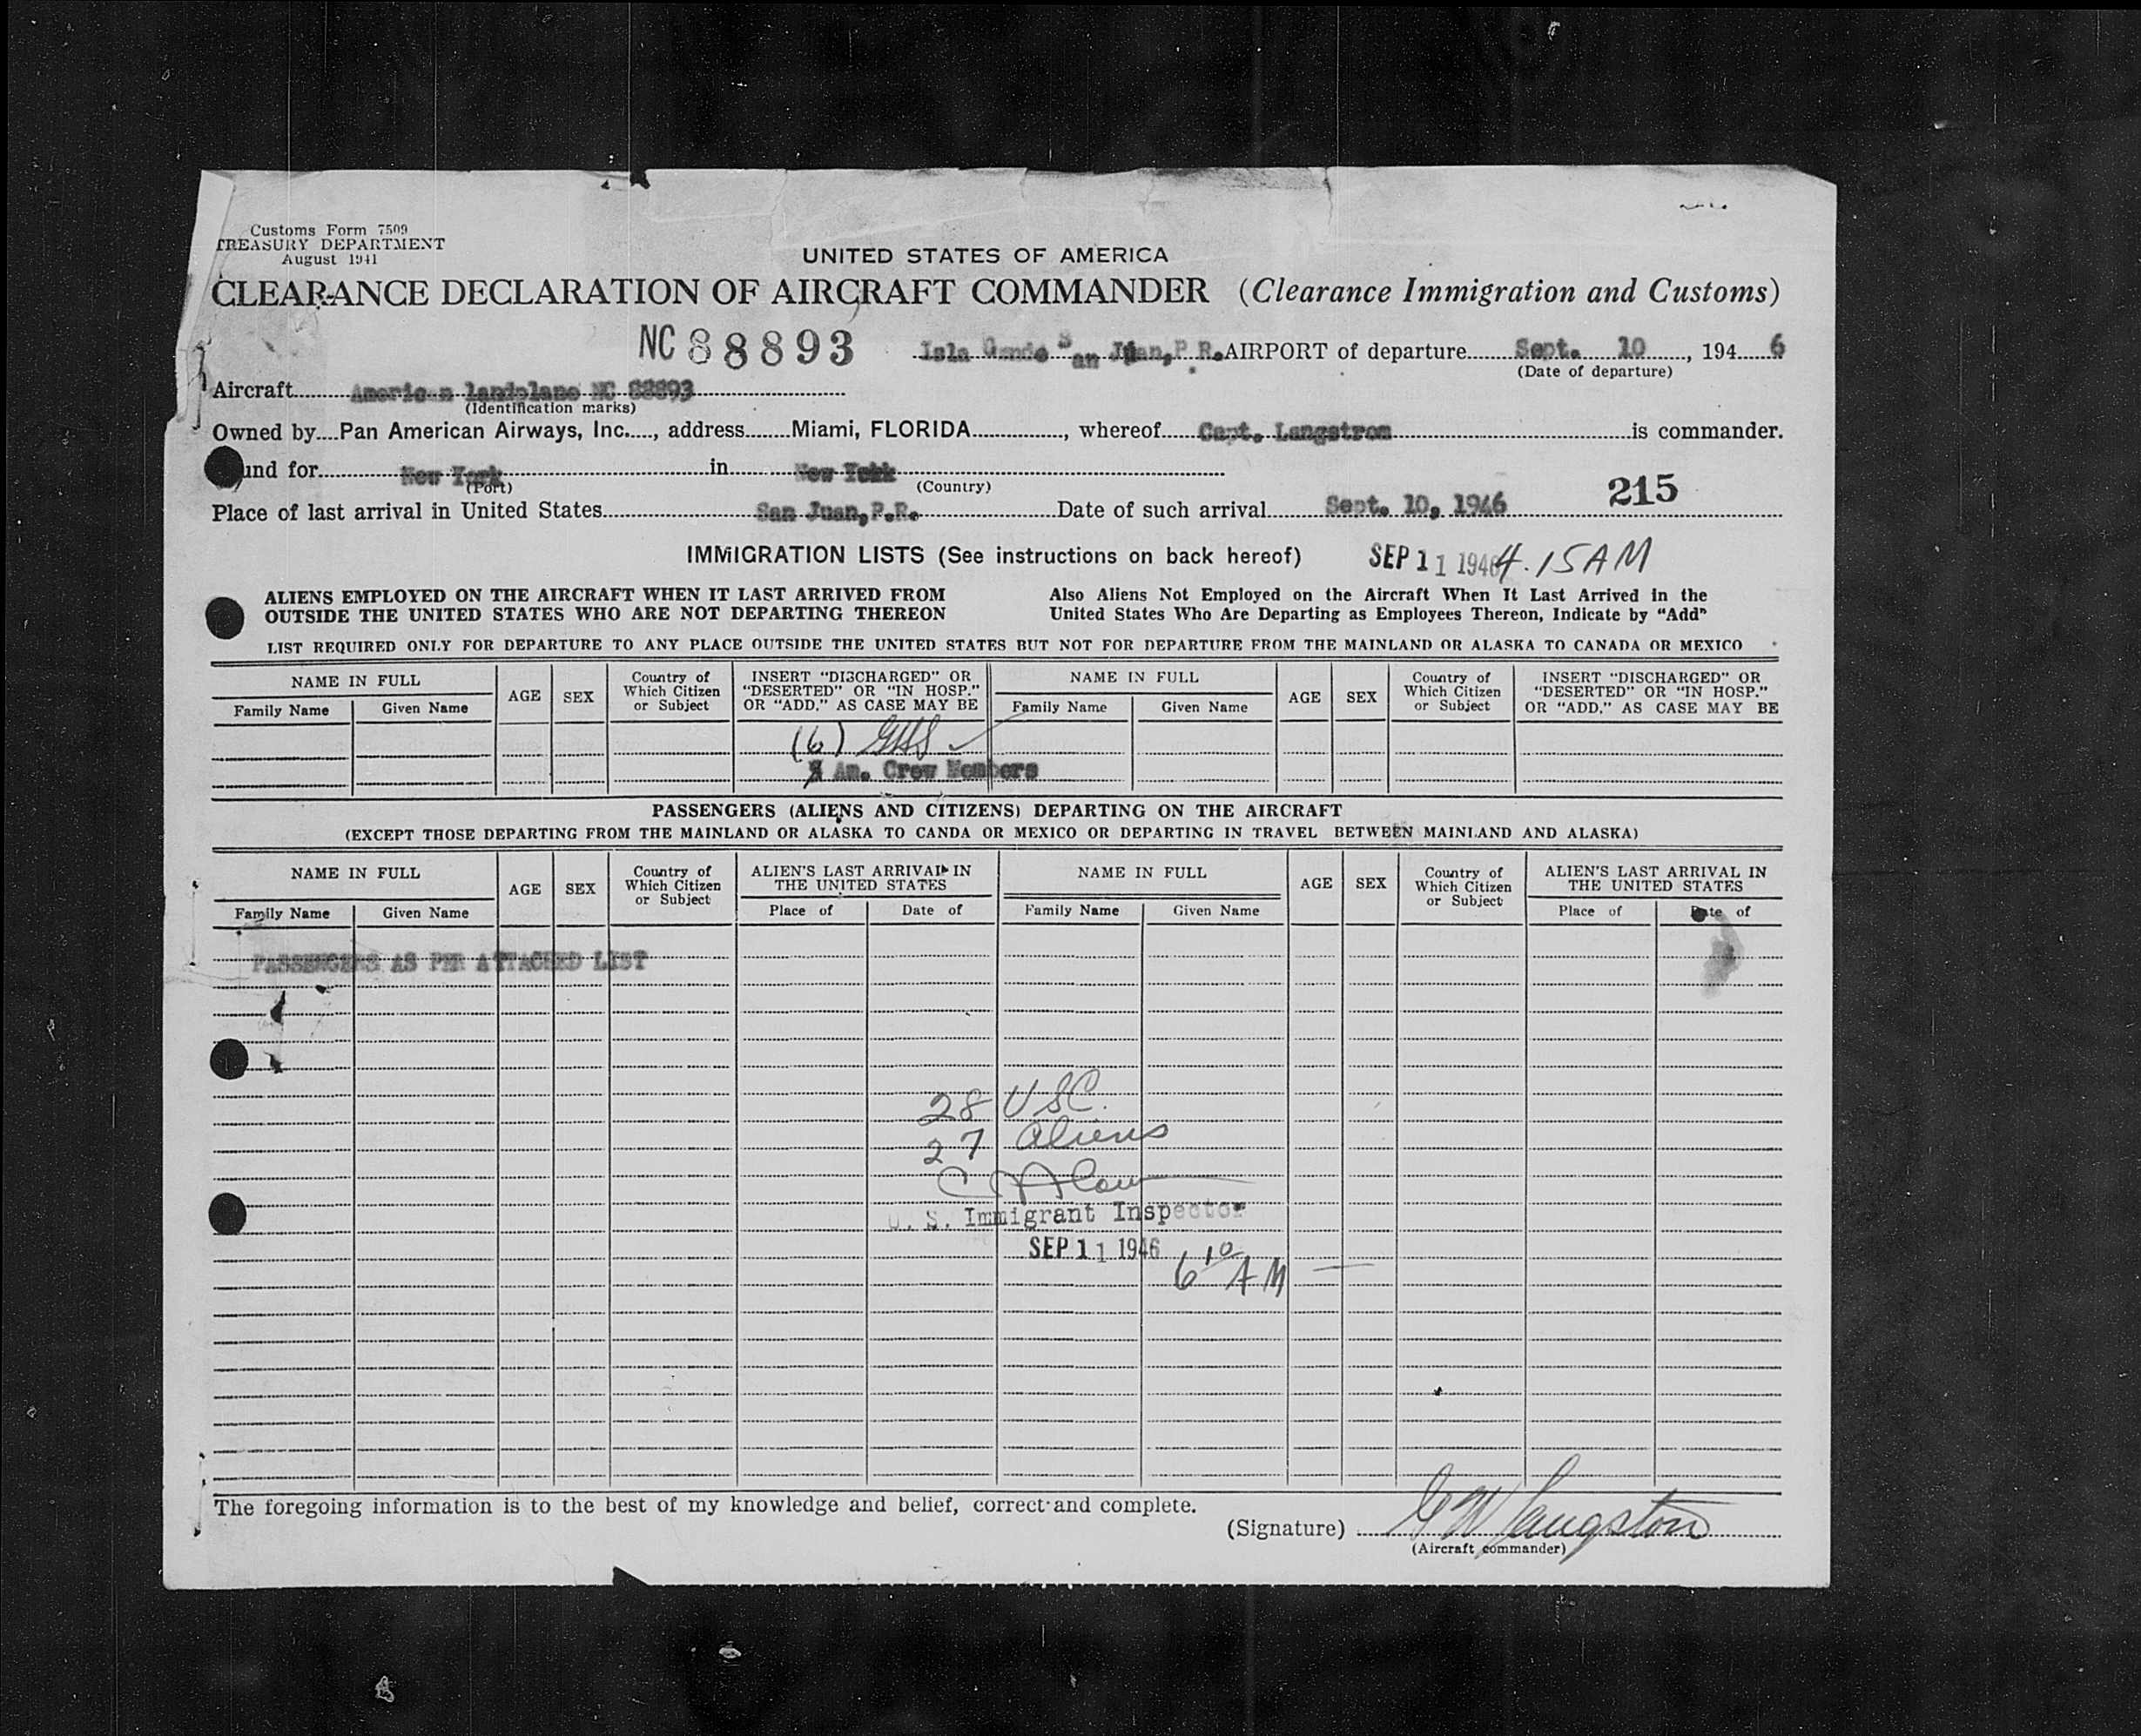 Customs Form 7509
TREASURY DEPARTMENT
August 1941
UNITED STATES OF AMERICA
CLEARANCE DECLARATION OF AIRCRAFT COMMANDER (Clearance Immigration and Customs)
NC 88893 Isla Gande San Juan, P.R. AIRPORT of departure Sept. 10, 1946
(Date of departure)
Aircraft American landplane NC 88893
(Identification marks)
Owned by Pan American Airways, Inc., address Miami, FLORIDA, whereof Capt. Langstrom is commander.
und for New York in New York
(Port) (Country)
215
Place of last arrival in United States San Juan, P.R. Date of such arrival Sept. 10, 1946
IMMIGRATION LISTS (See instructions on back hereof) SEP 11 1946 4.15 AM
ALIENS EMPLOYED ON THE AIRCRAFT WHEN IT LAST ARRIVED FROM Also Aliens Not Employed on the Aircraft When It Last Arrived in the
OUTSIDE THE UNITED STATES WHO ARE NOT DEPARTING THEREON United States Who Are Departing as Employees Thereon, Indicate by "Add"
LIST REQUIRED ONLY FOR DEPARTURE TO ANY PLACE OUTSIDE THE UNITED STATES BUT NOT FOR DEPARTURE FROM THE MAINLAND OR ALASKA TO CANADA OR MEXICO
NAME IN FULL AGE SEX Country of Which Citizen or Subject INSERT "DISCHARGED" OR "DESERTED" OR "IN HOSP." OR "ADD," AS CASE MAY BE NAME IN FULL AGE SEX Country of Which Citizen or Subject INSERT "DISCHARGED" OR "DESERTED" OR "IN HOSP." OR "ADD," AS CASE MAY BE
Family Name Given Name Family Name Given Name
(6) GHS
Am. Crew Members
PASSENGERS (ALIENS AND CITIZENS) DEPARTING ON THE AIRCRAFT
(EXCEPT THOSE DEPARTING FROM THE MAINLAND OR ALASKA TO CANDA OR MEXICO OR DEPARTING IN TRAVEL BETWEEN MAINLAND AND ALASKA)
NAME IN FULL AGE SEX Country of Which Citizen or Subject ALIEN'S LAST ARRIVAL IN THE UNITED STATES NAME IN FULL AGE SEX Country of Which Citizen or Subject ALIEN'S LAST ARRIVAL IN THE UNITED STATES
Family Name Given Name Place of Date of Family Name Given Name Place of Date of
PASSENGERS AS PER ATTACHED LIST
28 USC.
27 Aliens
U. S. Immigrant Inspector
SEP 11 1946
6 10 AM
The foregoing information is to the best of my knowledge and belief, correct and complete.
(Signature) G W Langston
(Aircraft commander)